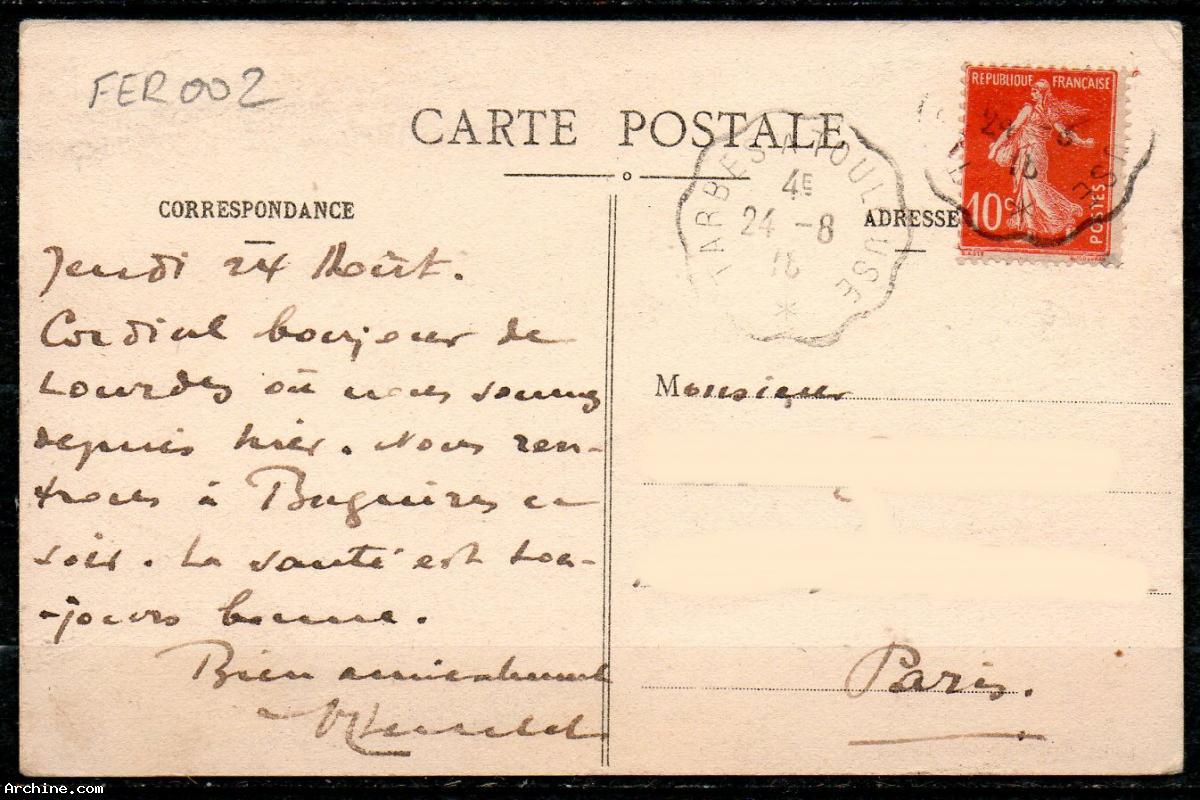 FER002
CARTE POSTALE
CORRESPONDANCE
ADRESSE
REPUBLIQUE FRANÇAISE
10c
POSTES
TARBES A TOULOUSE
4E
24 -8
16
*
24 -8
16
*
SE
Jeudi 24 Août.
Cordial bonjour de
Lourdes où nous sommes
depuis hier. Nous ren-
trons à Bagnères ce
soir. La santé est tou-
-jours bonne.
Bien amicalement
Monsieur
Paris.
Archine.com